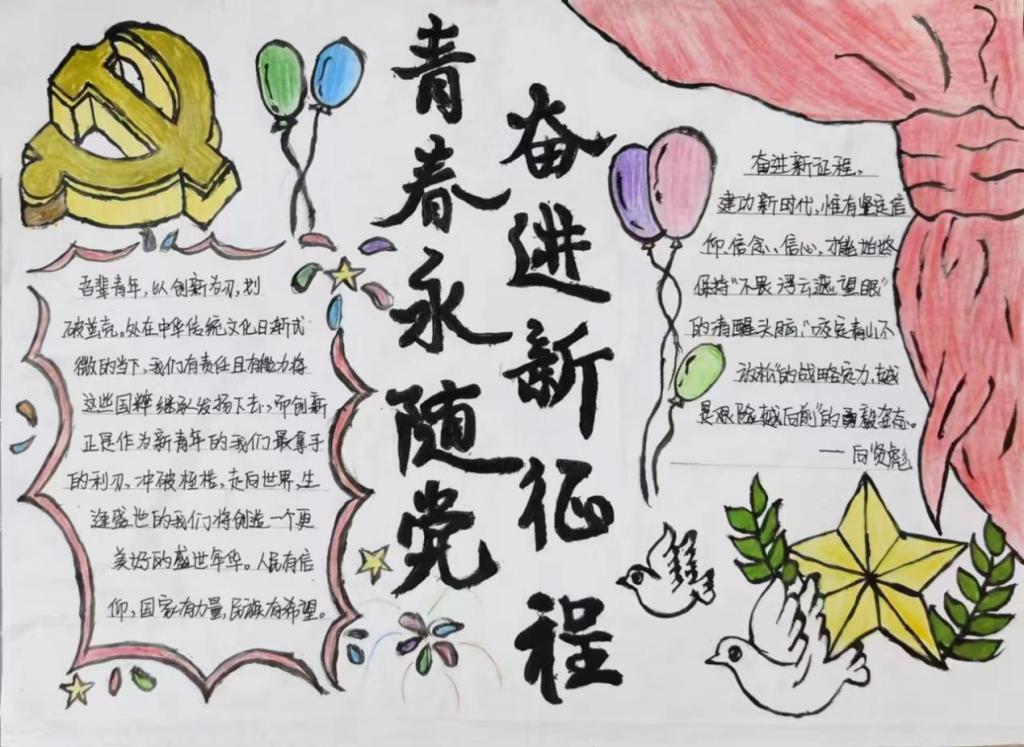 青春永随党
奋进新征程
吾辈青年,以创新为刃,划
破茧壳。处在中华传统文化日渐式
微的当下,我们有责任且有能力将
这些国粹继承发扬下去,而创新
正是作为新青年的我们最拿手
的利刃,冲破桎梏,走向世界,生
逢盛世的我们将创造一个更
美好的盛世年华。人民有信
仰,国家有力量,民族有希望。
奋进新征程,
建功新时代,惟有坚定信
仰、信念、信心,才能始终
保持“不畏浮云遮望眼”
的清醒头脑,“咬定青山不
放松”的战略定力,越
是艰险越向前”的勇毅姿态。
——向贤彪